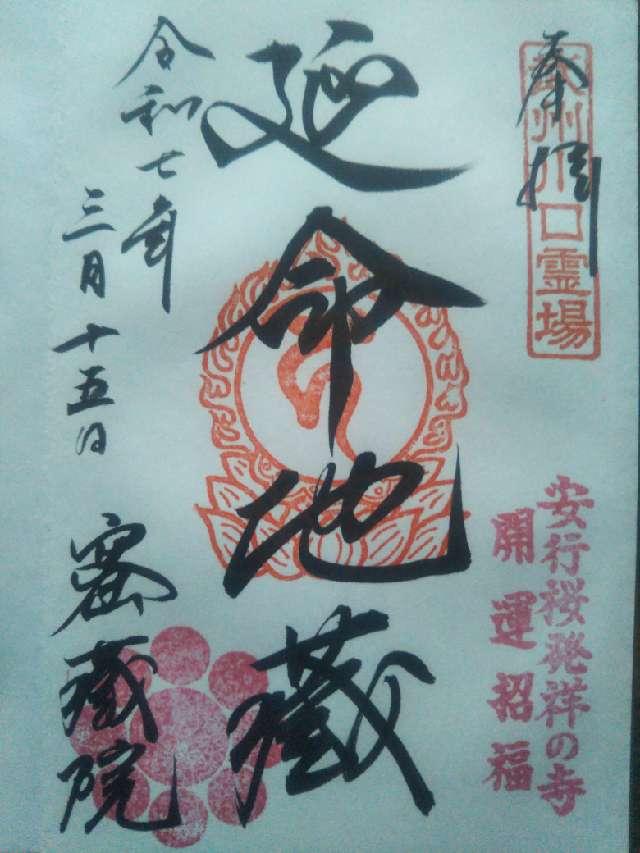 奉拝
武州川口霊場
安行桜発祥の寺
開運招福
延命地蔵
令和七年
三月十五日
密蔵院